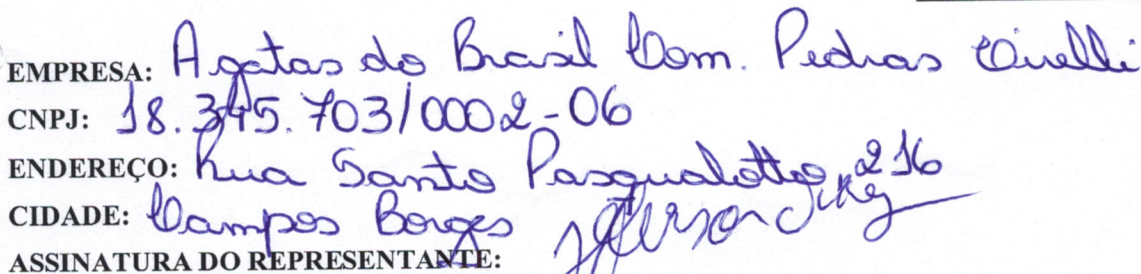 EMPRESA: Agatas do Brasil Com. Pedras Cirelli
CNPJ: 18.345.703/0002-06
ENDEREÇO: Rua Santo Pasqualotto, 216
CIDADE: Campos Borges
ASSINATURA DO REPRESENTANTE: